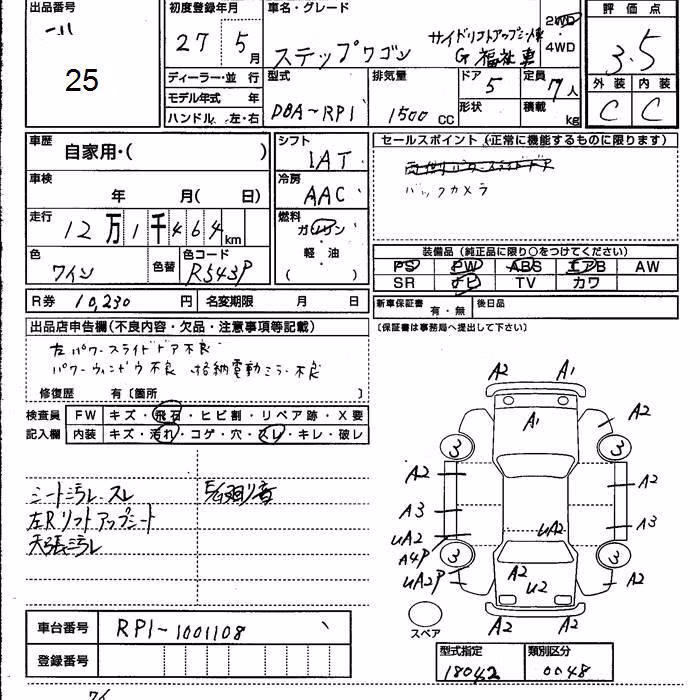 出品番号
一八
25
初度登録年月
27 5月
車名・グレード
ステップワゴン サイドリフトアップシート車
G 福祉車
2WD・4WD
評価点
3.5
外装 内装
C C
ディーラー・並行
モデル年式 年
ハンドル 左・右
型式
DBA-RP1
排気量
1500 CC
ドア 5
形状
定員 7人
積載 kg
車歴 自家用・( )
シフト
IAT
車検
年 月( 日)
冷房
AAC
走行
12万1千464km
燃料
ガソリン
・
軽・油
( )
色
ワイン
色替
色コード
R543P
セールスポイント (正常に機能するものに限ります)
両側パワースライドドア
バックカメラ
装備品 (純正品に限り○をつけてください)
PS PW ABS エアB AW
SR ナビ TV カワ
R券 10,230 円 名変期限 月 日
新車保証書 有・無 後日品
(保証書は事務局へ提出して下さい)
出品店申告欄(不良内容・欠品・注意事項等記載)
左パワースライドドア不良
パワーウィンドウ不良 格納電動ミラー不良
修復歴 有〔箇所 〕
検査員 FW キズ・飛石・ヒビ割・リペア跡・X要
記入欄 内装 キズ・汚れ・コゲ・穴・スレ・キレ・破レ
シート汚レ、スレ
左Rリフトアップシート
天張汚レ
A2 A1
A1 A2
3 3
A2 A2
A3 A3
UA2 UA2
A4P
3 3
UA2P A2 U2 A2
A2 A2
スペア
車台番号 RP1-1001108
登録番号
型式指定 類別区分
18042 0048
ワイ